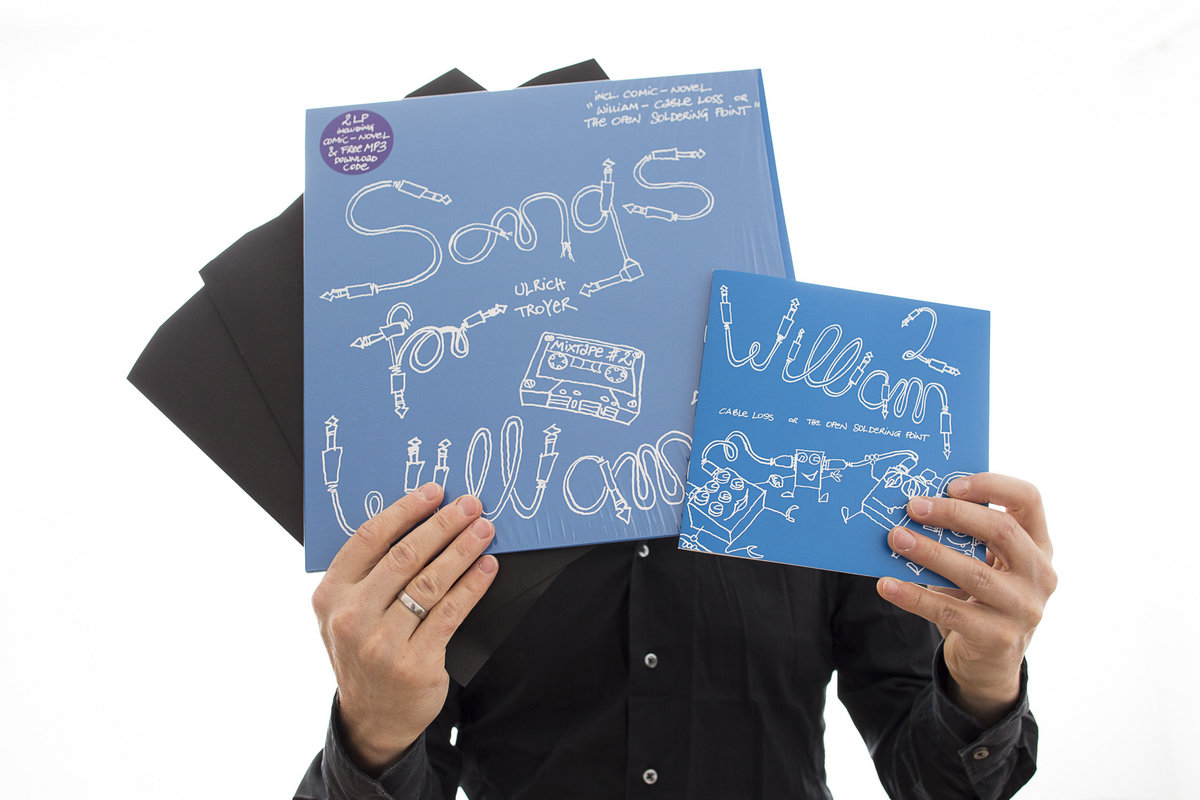 2 LP
including
comic-novel
& free MP3
download
code
incl. comic-novel
"William - Cable Loss or
the open soldering point"
Songs
Ulrich
Troyer
for
Mixtape #2
William
William 2
Cable Loss or the open soldering point